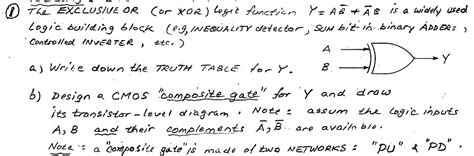 ① The EXCLUSIVE OR (or XOR) logic function Y = AB̅ + A̅B is a widely used
Logic building block (e.g, INEQUALITY detector, SUM bit in binary ADDERS,
Controlled INVERTER, etc.)
A
B
Y
a) Write down the TRUTH TABLE for Y.
b) Design a CMOS "composite gate" for Y and draw
its transistor-level diagram. Note: assum the logic inputs
A, B and their complements A̅, B̅ are available.
Note: a "composite gate" is made of two NETWORKS: "PU" & "PD".